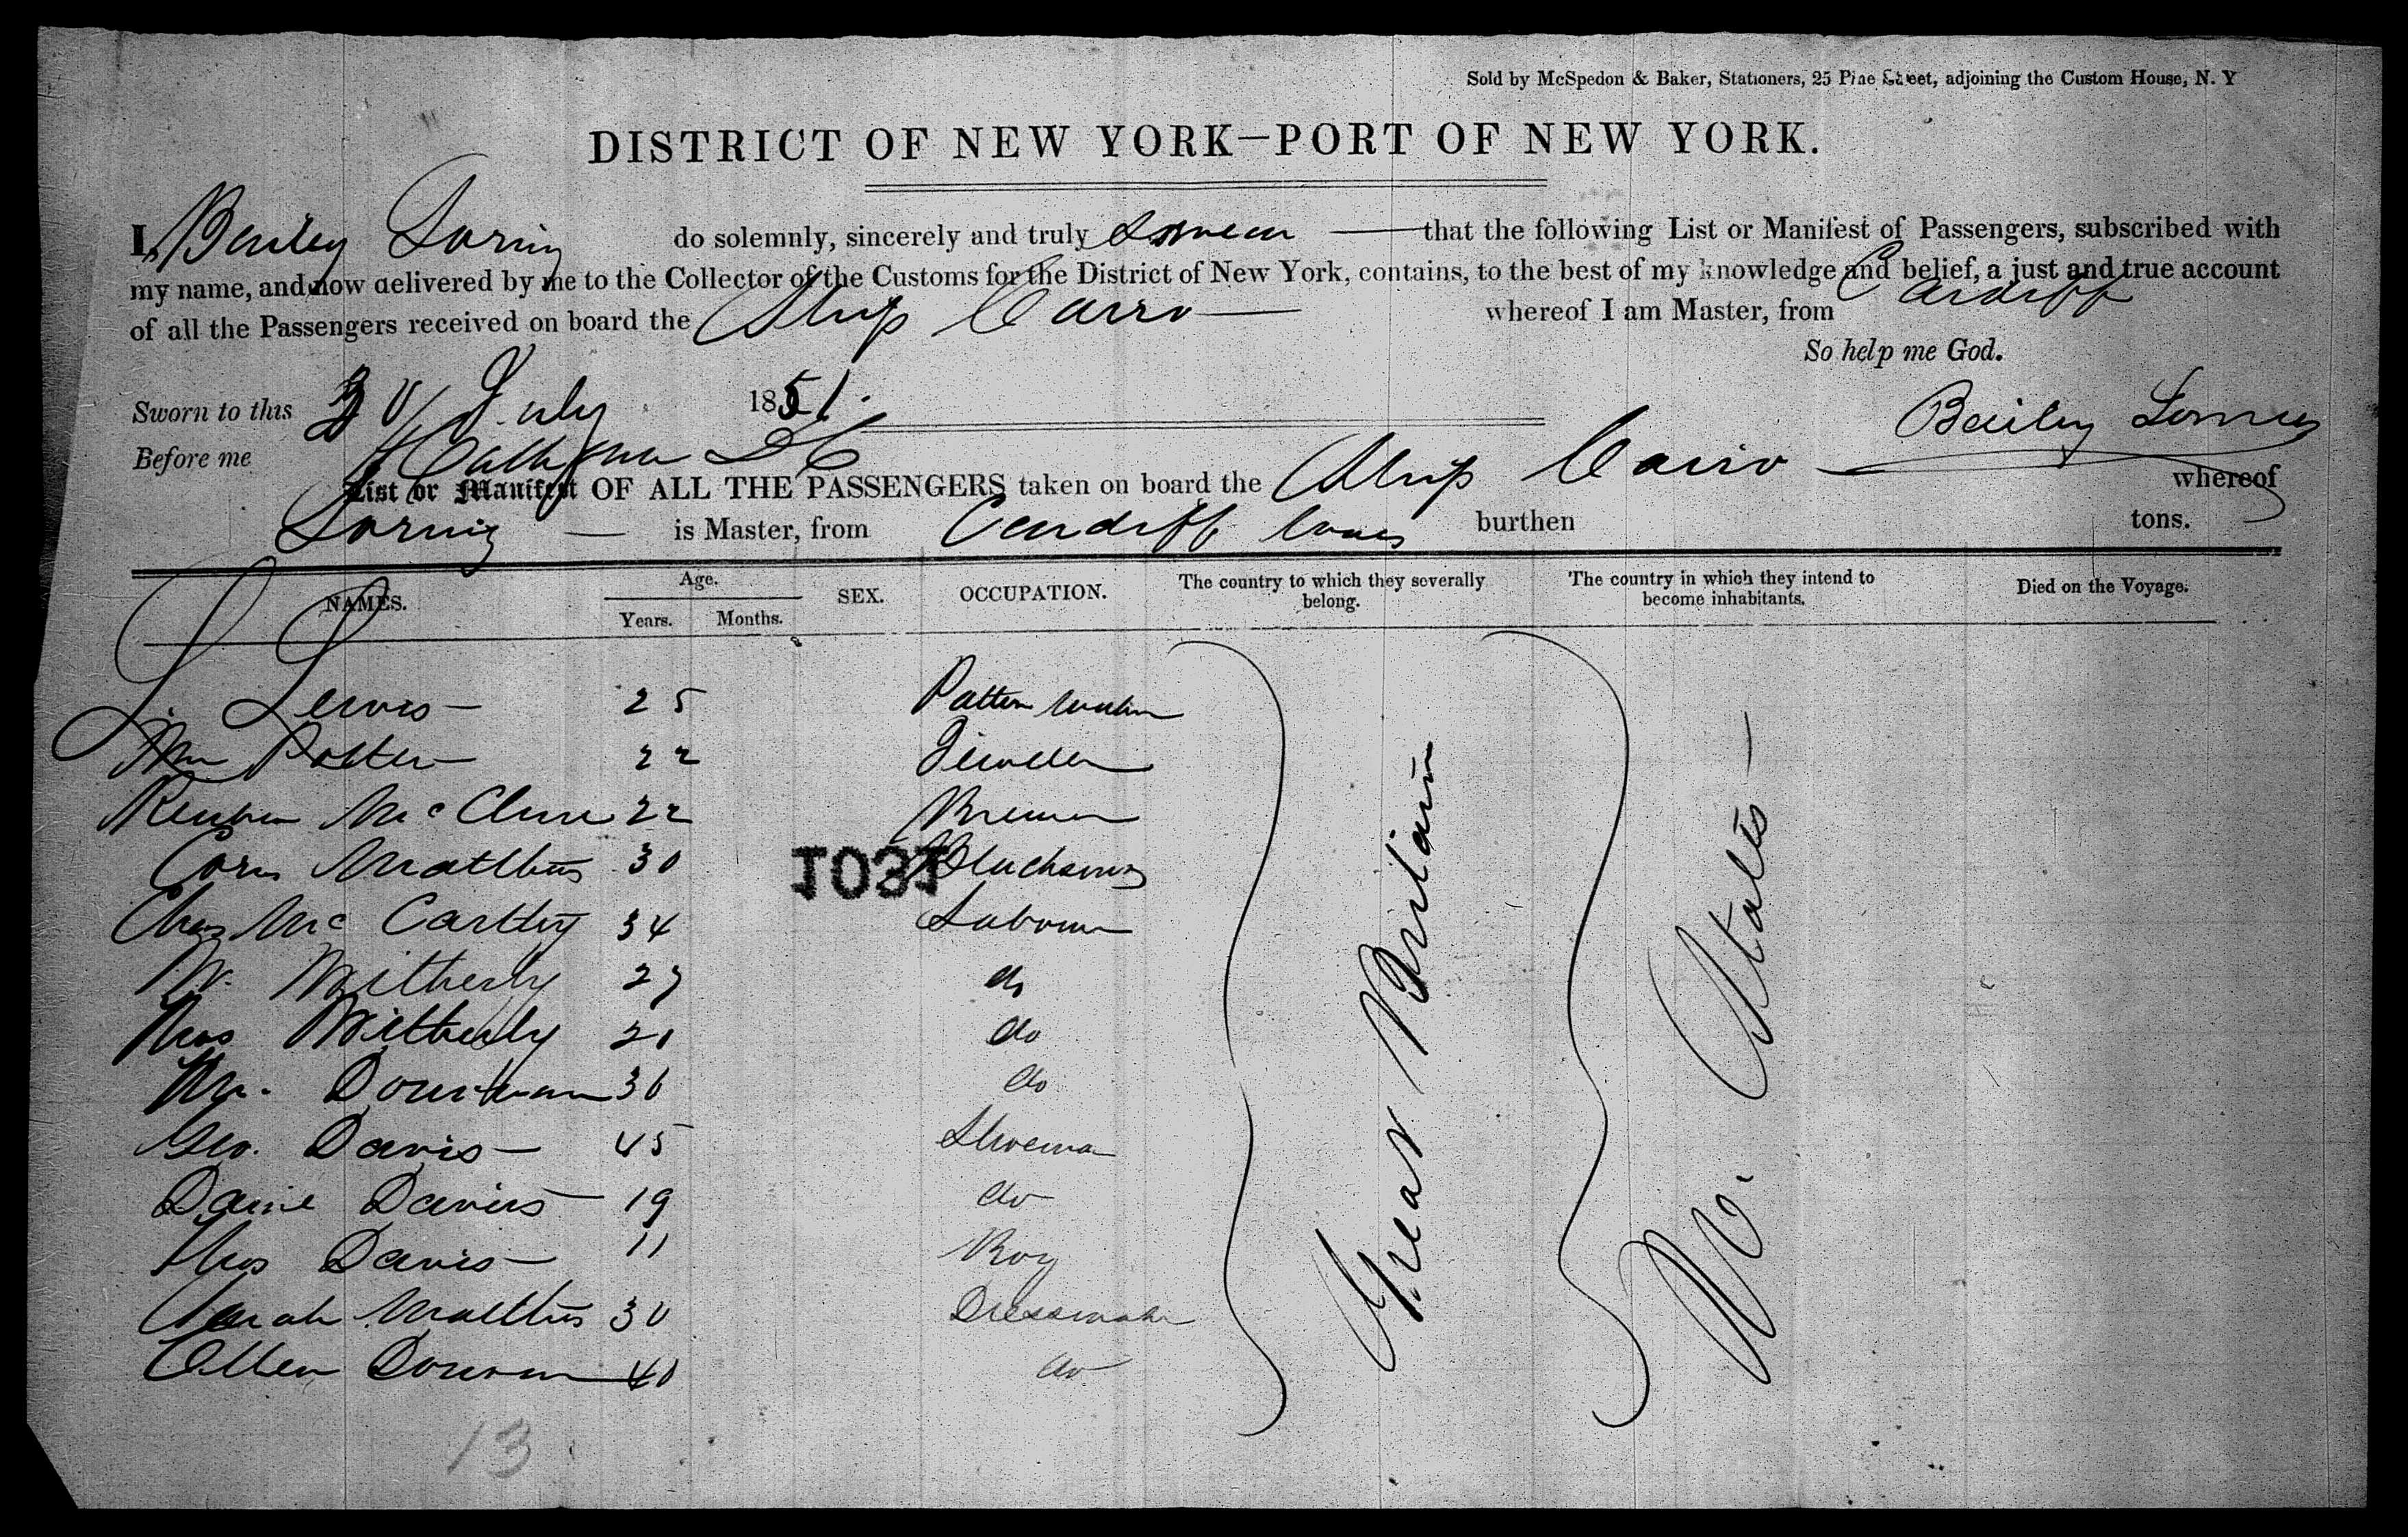 Sold by McSpedon & Baker, Stationers, 25 Pine Street, adjoining the Custom House, N. Y
DISTRICT OF NEW YORK—PORT OF NEW YORK.
I, Bailey Loring do solemnly, sincerely and truly swear that the following List or Manifest of Passengers, subscribed with
my name, and now delivered by me to the Collector of the Customs for the District of New York, contains, to the best of my knowledge and belief, a just and true account
of all the Passengers received on board the Ship Cairo whereof I am Master, from Cardiff
So help me God.
Sworn to this 30 July 1851.
Bailey Loring
Before me
List or Manifest OF ALL THE PASSENGERS taken on board the Ship Cairo whereof
Loring is Master, from Cardiff burthen tons.
NAMES. Age. Years. Months. SEX. OCCUPATION. The country to which they severally belong. The country in which they intend to become inhabitants. Died on the Voyage.
L. Lewis 25 Pattern maker
Wm Potter 22 Jeweller
Reuben McClure 22 Brewer
Corn Matthews 30 Blacksmith
Chas McCarthy 34 Labourer
W. Witherly 27 do
Thos Witherly 20 do
Wm. Donovan 36 do
Geo. Davis 45 Shoema
Daniel Davis 19 do
Thos Davis 11 Boy
Sarah Matthews 30 Dressmaker
Ellen Donovan 40 do
Great Britain
U. States
1031
13